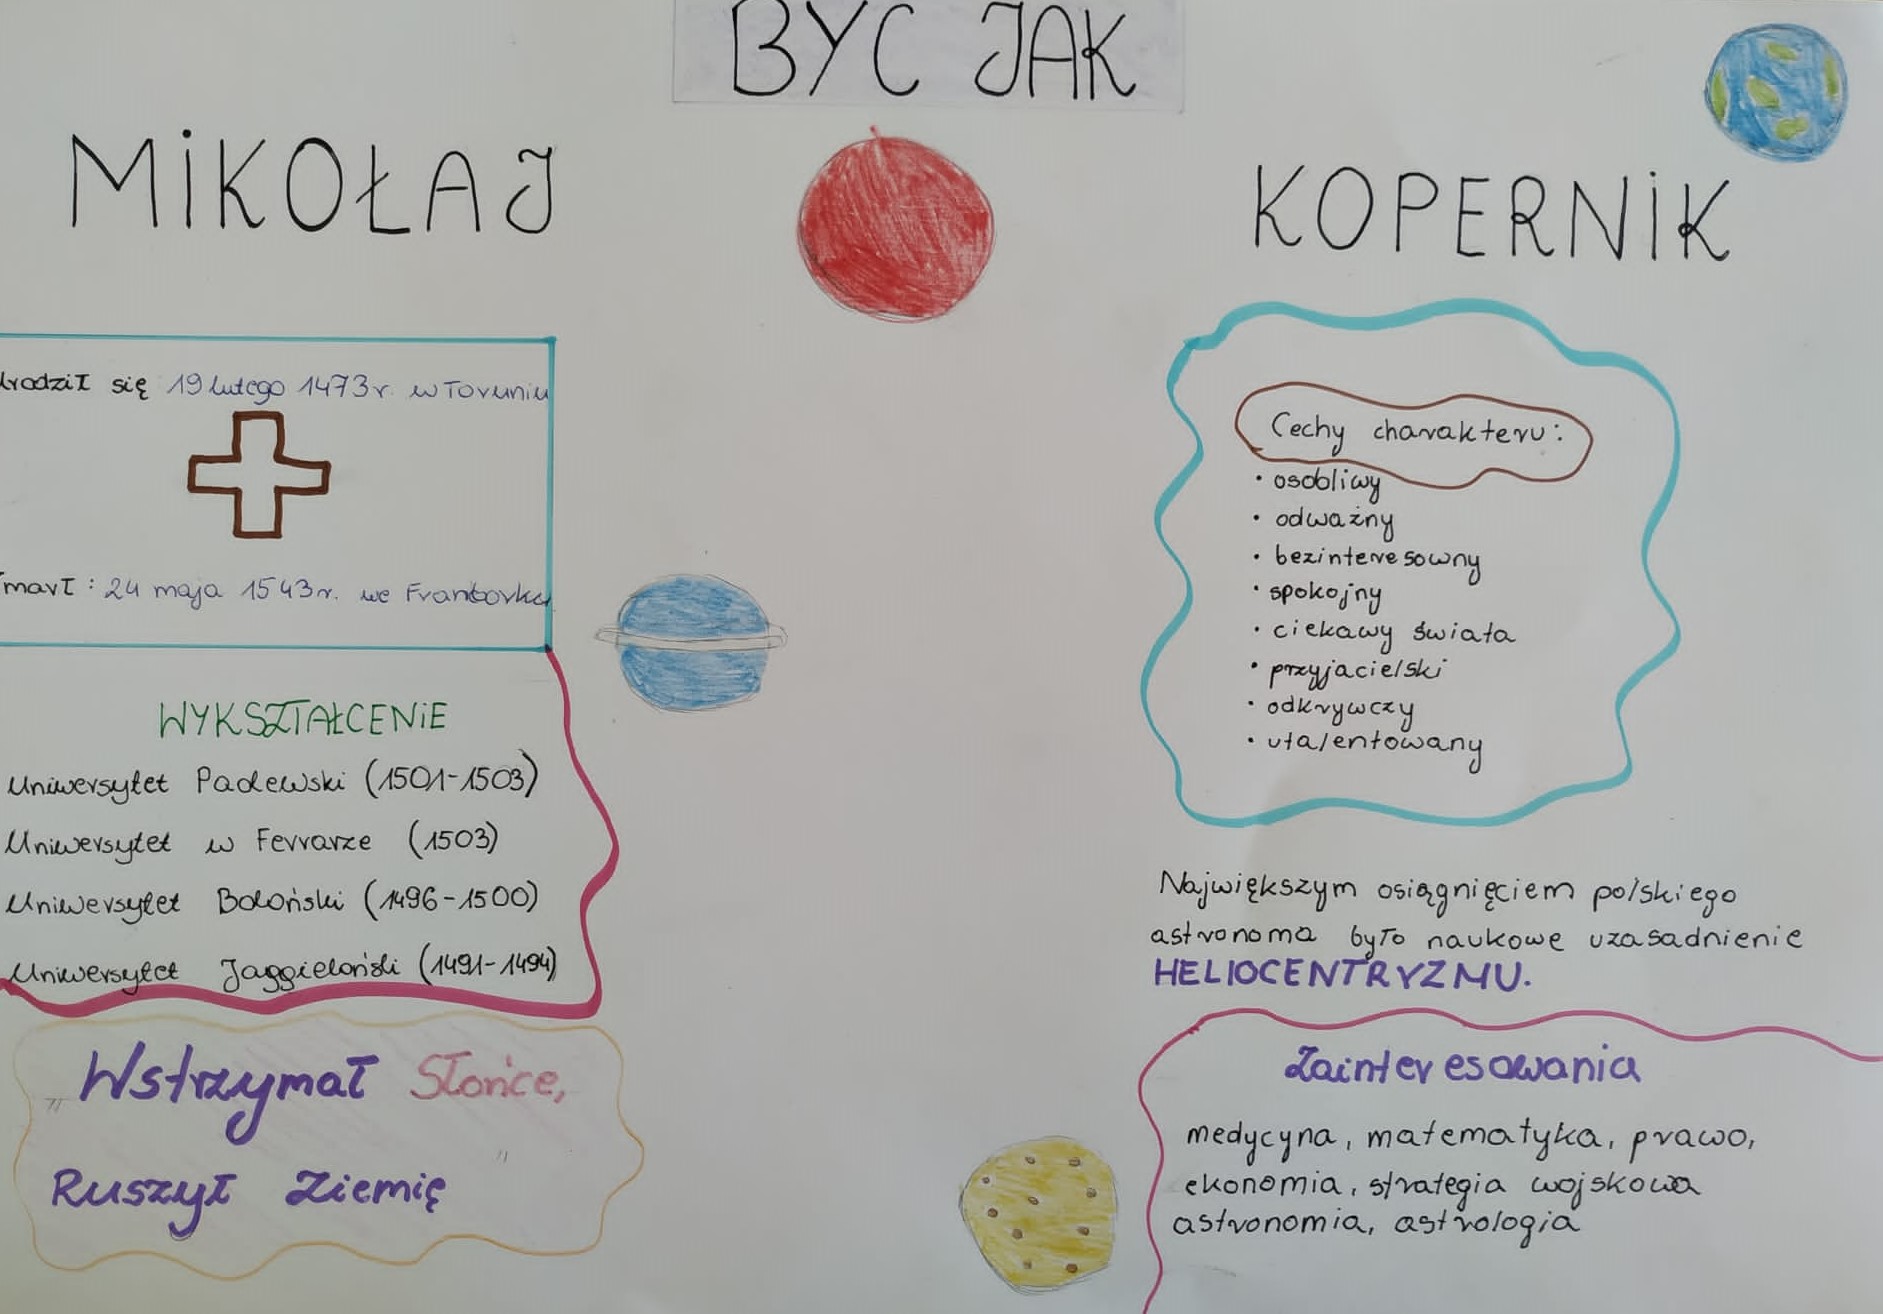 BYC JAK
MiKOŁAJ
KOPERNiK
urodził się 19 lutego 1473r. w Toruniu
zmarł : 24 maja 1543r. we Fromborku
WYKSZTAŁCENiE
Uniwersytet Padewski (1501-1503)
Uniwersytet w Ferrarze (1503)
Uniwersytet Boloński (1496-1500)
Uniwersytet Jaggieloński (1491-1494)
„Wstrzymał Słońce,
Ruszył Ziemię"
Cechy charakteru:
• osobliwy
• odważny
• bezinteresowny
• spokojny
• ciekawy świata
• przyjacielski
• odkrywczy
• utalentowany
Największym osiągnięciem polskiego
astronoma było naukowe uzasadnienie
HELIOCENTRYZMU.
Zainteresowania
medycyna, matematyka, prawo,
ekonomia, strategia wojskowa
astronomia, astrologia